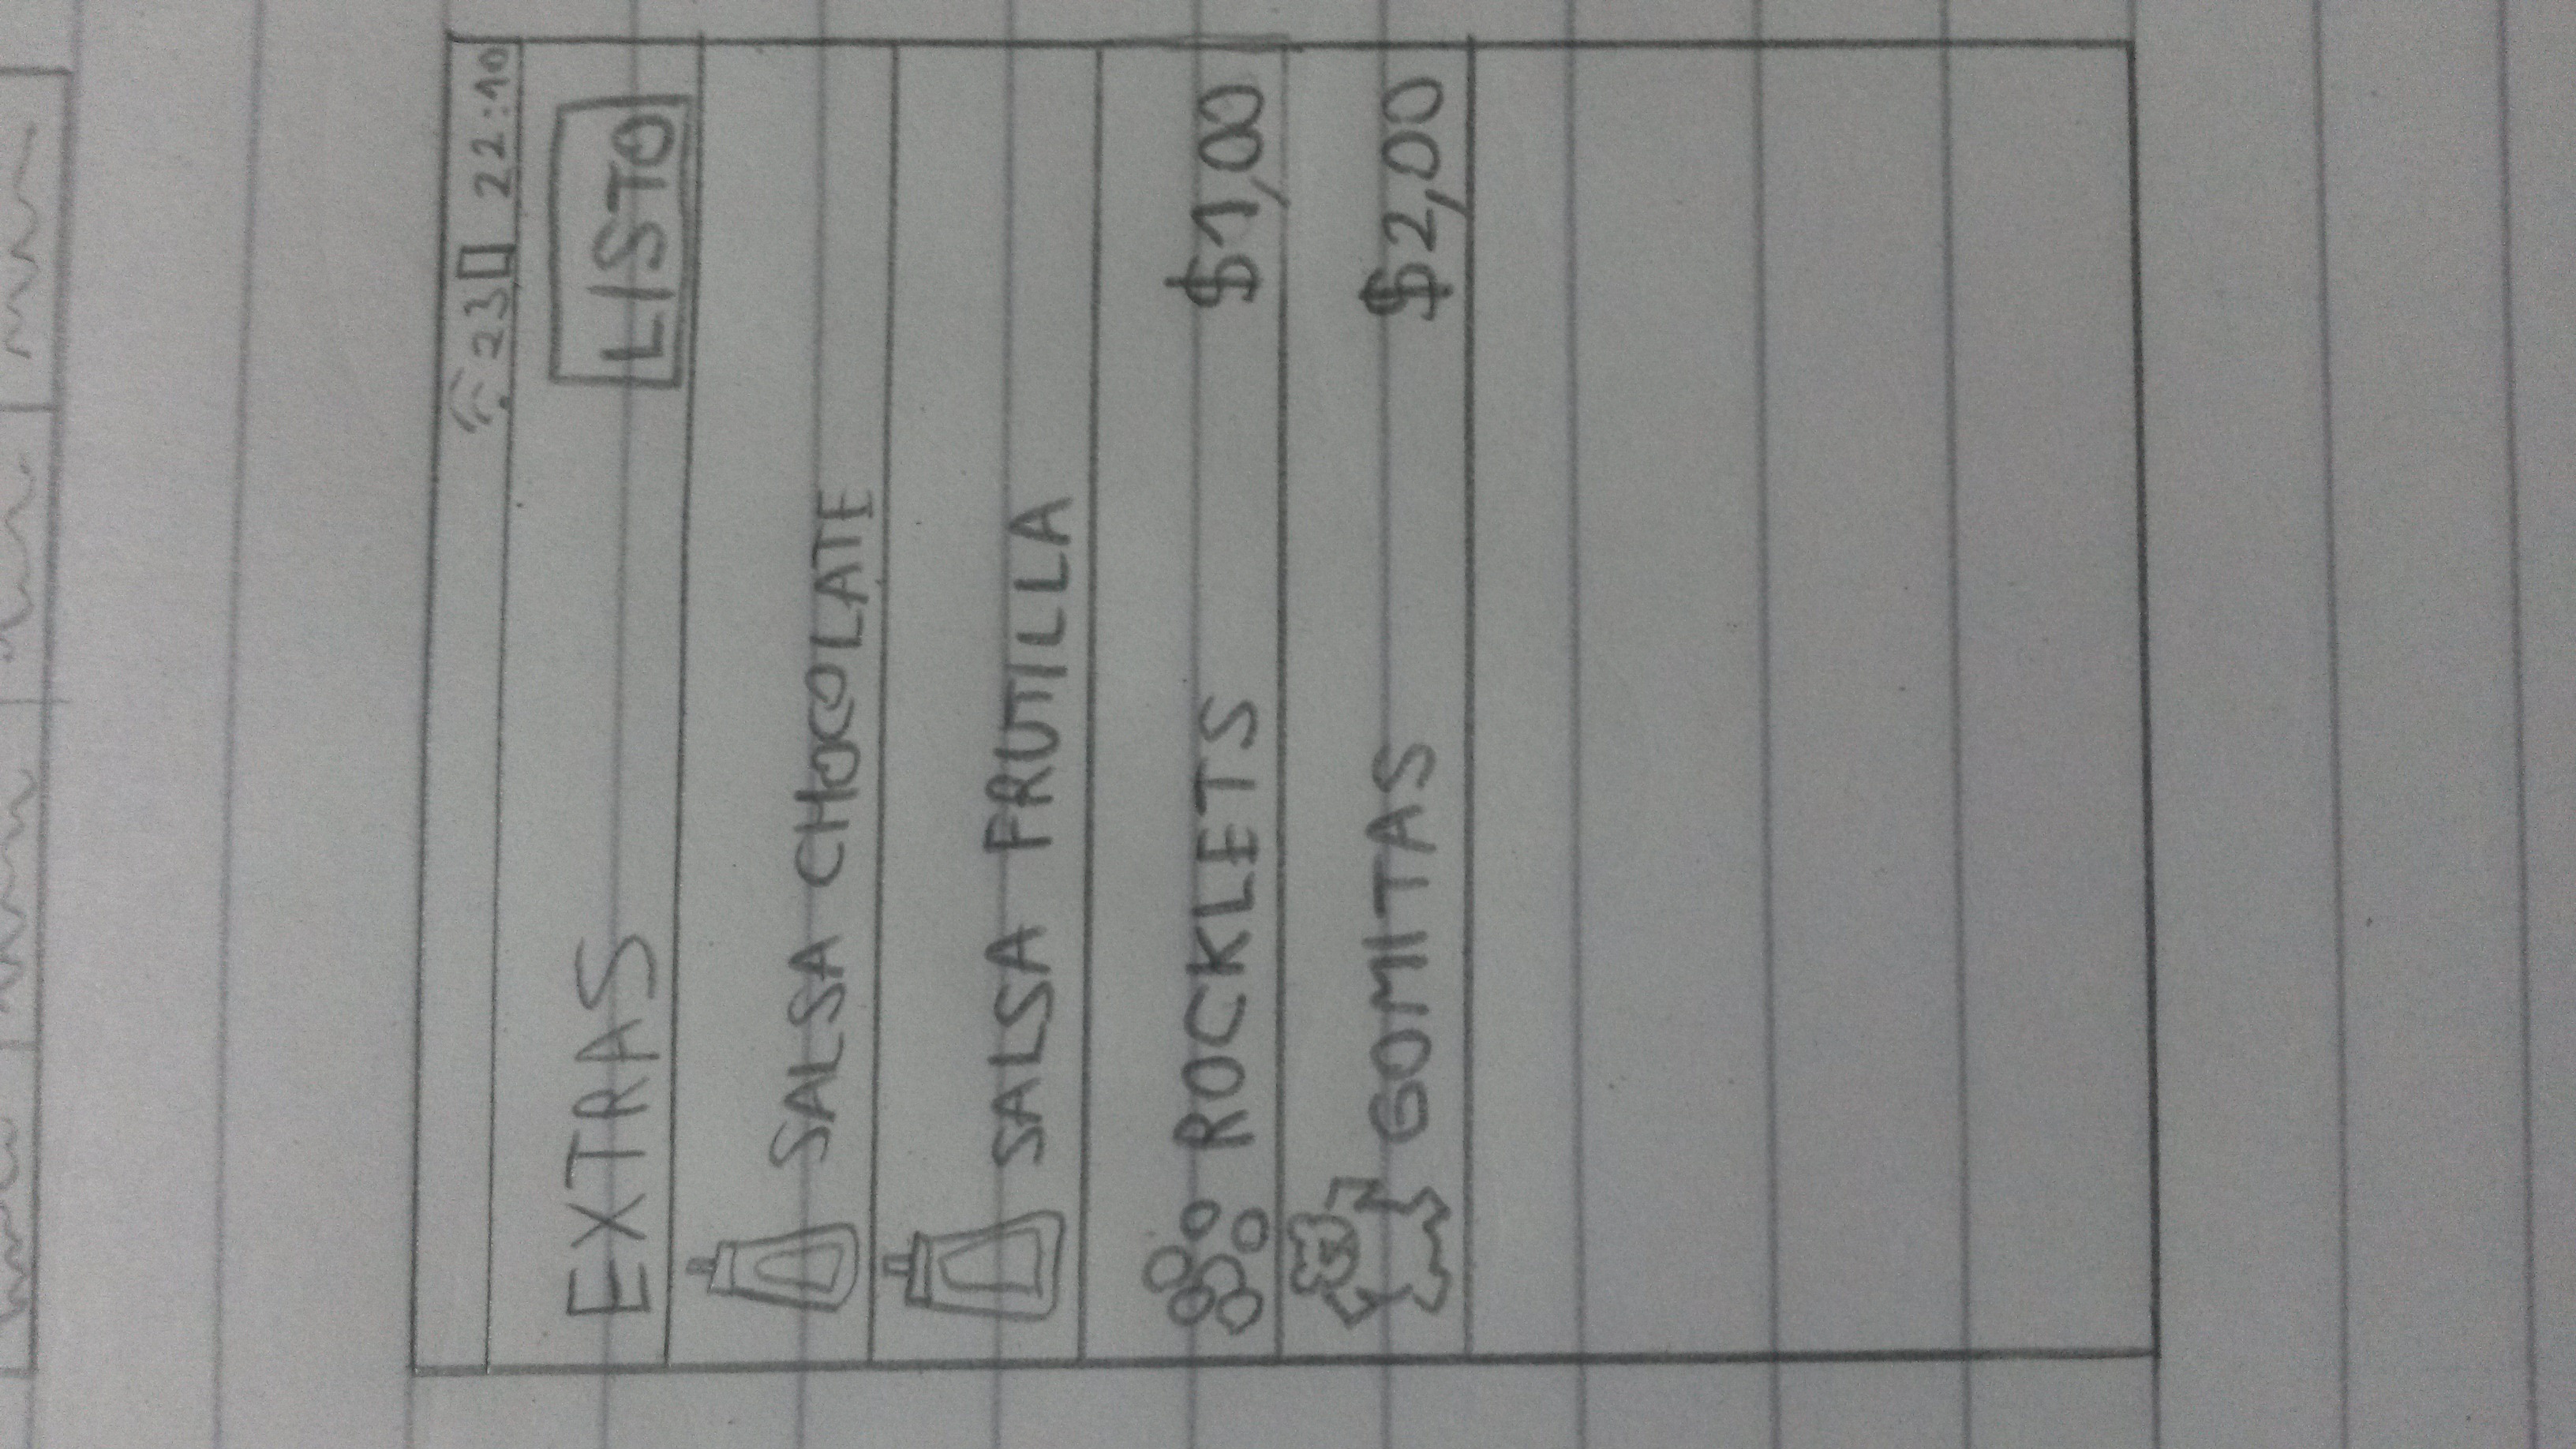 23 22:10
EXTRAS LISTO
SALSA CHOCOLATE
SALSA FRUTILLA
ROCKLETS $1,00
GOMITAS $2,00